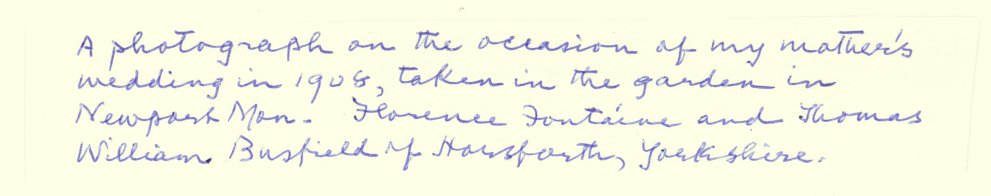 A photograph on the occasion of my mother's
wedding in 1908, taken in the garden in
Newport Mon. Florence Fontaine and Thomas
William Busfield of Horsforth, Yorkshire.